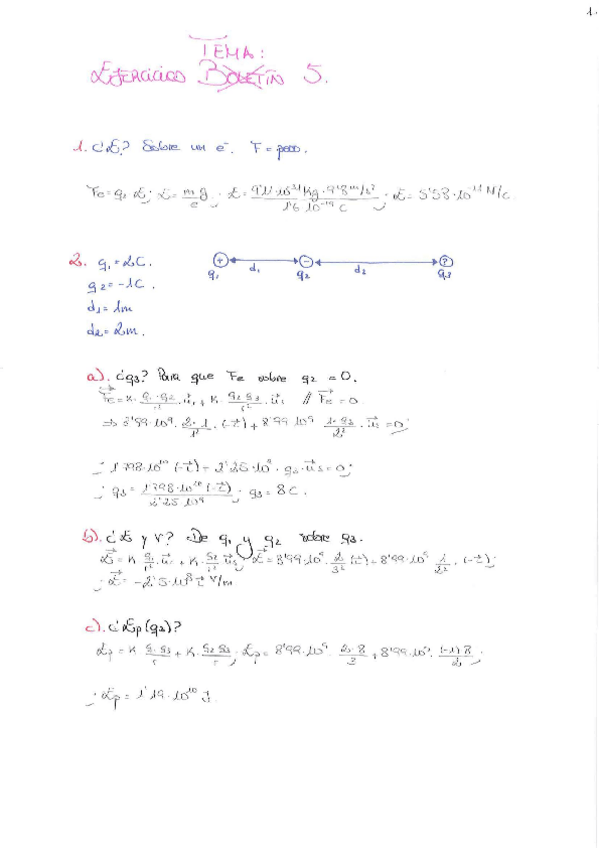 1.
TEMA:
EJERCICIOS BOLETÍN 5.
1. ¿E? Sobre un e-. F = peso.
Fe = q · E ; E = m g / e ; E = 9'11·10^-31 Kg · 9'8 m/s² / 1'6 10^-19 C ; E = 5'58·10^-11 N/C.
2. q1 = 2C.
q2 = -1C.
d1 = 1m
d2 = 2m.
+ d1 - d2 ?
q1 q2 q3
a). ¿q3? Para que Fe sobre q2 = 0.
Fe = K · q1·q2 / r² · ur + K · q2 q3 / r² · us // Fe = 0
⇒ 8'99·10⁹ · 2·1 / 1² · (-i) + 8'99 10⁹ 1·q3 / 2² · us = 0 ;
; 1'798·10^10 (-i) + 2'25·10⁹ · q3 · us = 0 ;
; q3 = 1'798·10^10 (-i) / 2'25 10⁹ ; q3 = 8 C.
b). ¿E y V? De q1 y q2 sobre q3.
E = K q1 / r² · ur + K · q2 / r² us ; E = 8'99·10⁹ · 2 / 3² (i) + 8'99·10⁹ · 1 / 2² · (-i) ;
; E = -2'5·10⁸ i V/m
c). ¿Ep (q3)?
Ep = K q1 q3 / r + K · q2 q3 / r ; Ep = 8'99·10⁹ · 2·8 / 3 + 8'99·10⁹ · (-1) 8 / 2 ;
; Ep = 1'19·10^10 J.